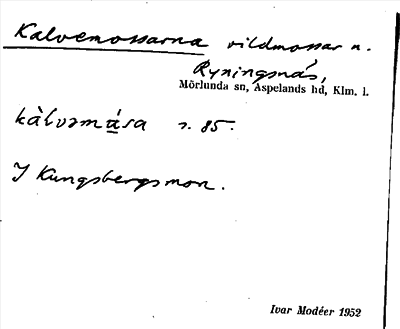 Kalvemossarna vildmossar n.
Ryningsnäs,
Mörlunda sn, Aspelands hd, Klm. l.
kàlvəmása s. 85.
I Kungsbergsmon.
Ivar Modéer 1952